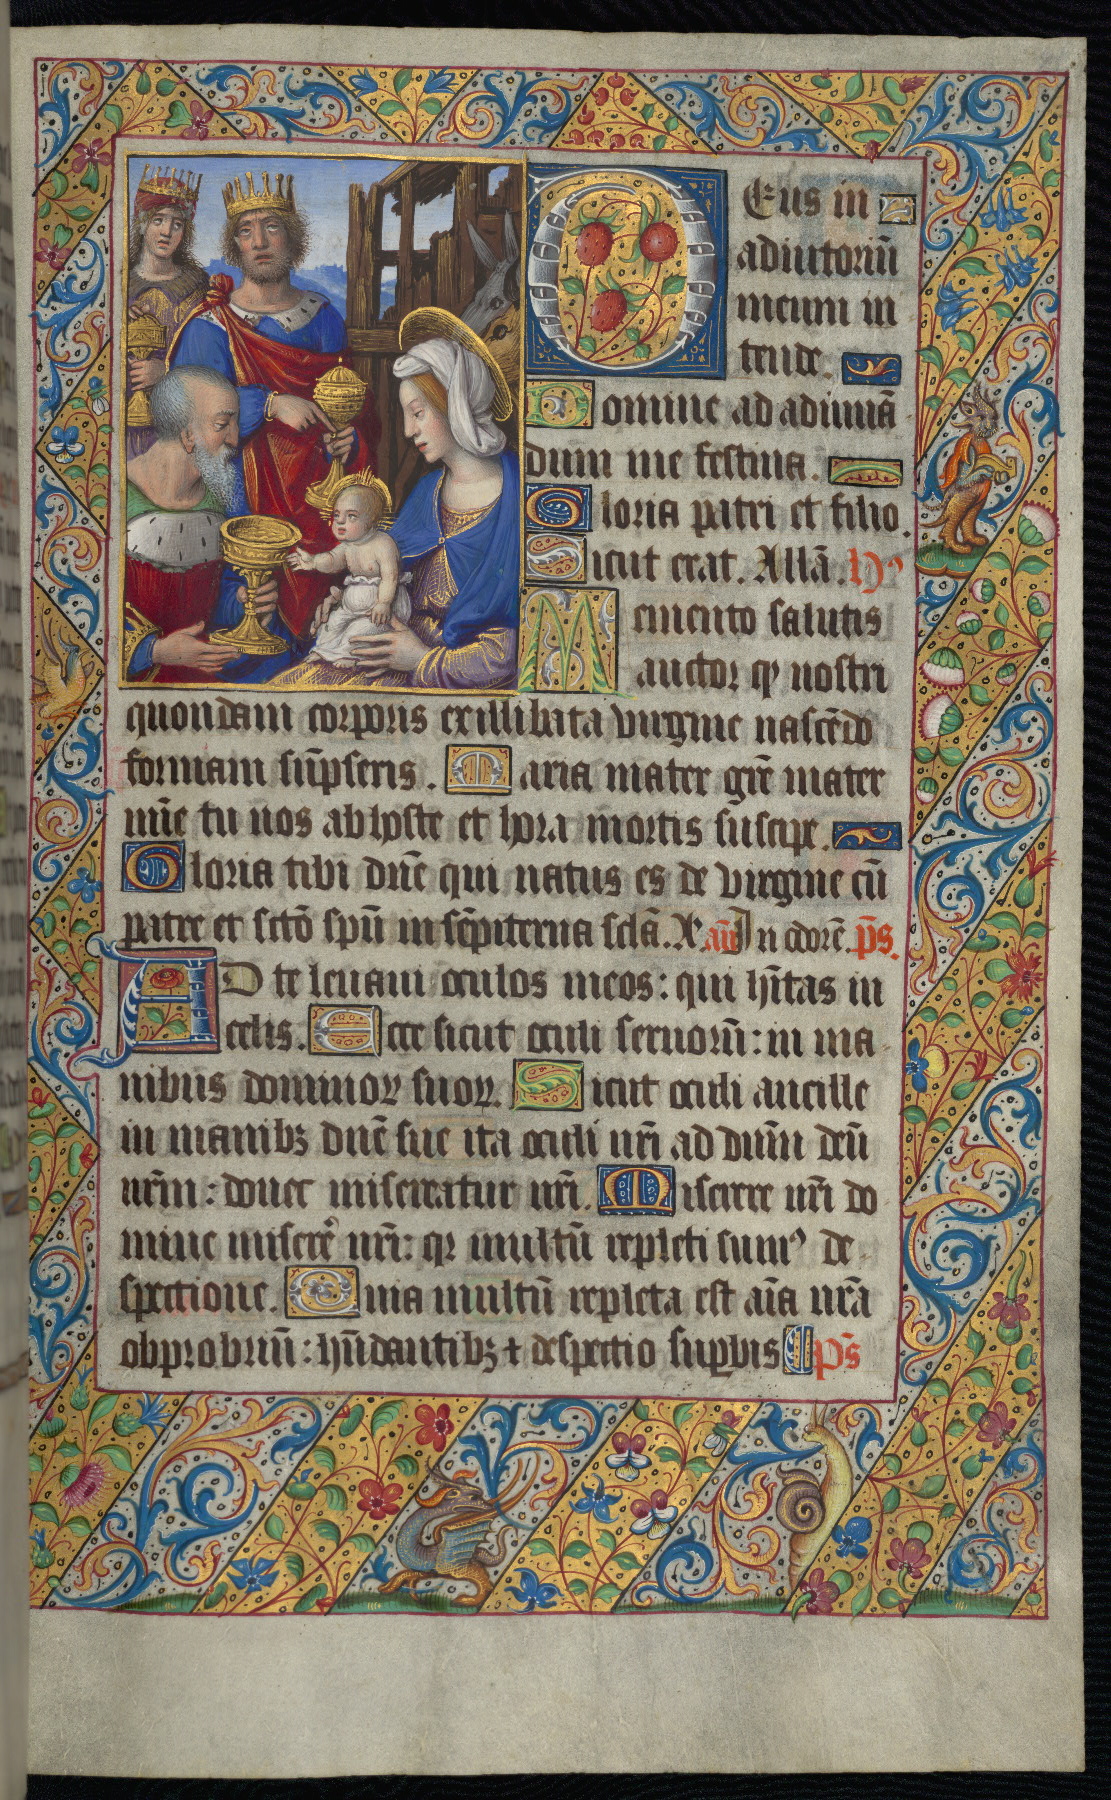 Deus in
adiutoriū
meum in
tende.
Domine ad adiuuā
dum me festina.
Gloria patri et filio.
Sicut erat. Allā. Hꝰ
Memento salutis
auctor qꝫ nostri
quondam corporis ex illibata virgine nascēdo
formam sūpseris. Maria mater grē mater
mīe tu nos ab hoste et hora mortis suscipe.
Gloria tibi dnē qui natus es de virgine cū
patre et sctō spū in sēpiterna sclā. A. añ In odorē. ps̄.
AD te leuaui oculos meos: qui hītas in
celis. Ecce sicut oculi seruorū: in ma
nibus dominoꝝ suoꝝ. Sicut oculi ancille
in manibꝫ dnē sue ita oculi nrī ad dnm̄ deū
nrm̄: donec misereatur nrī. Miserere nrī do
mine miserē nrī: qꝛ multū repleti sumꝰ de-
spectione. Quia multū repleta est aīa nrā
obprobriū: hūdantibꝫ ⁊ despectio supbis ps̄